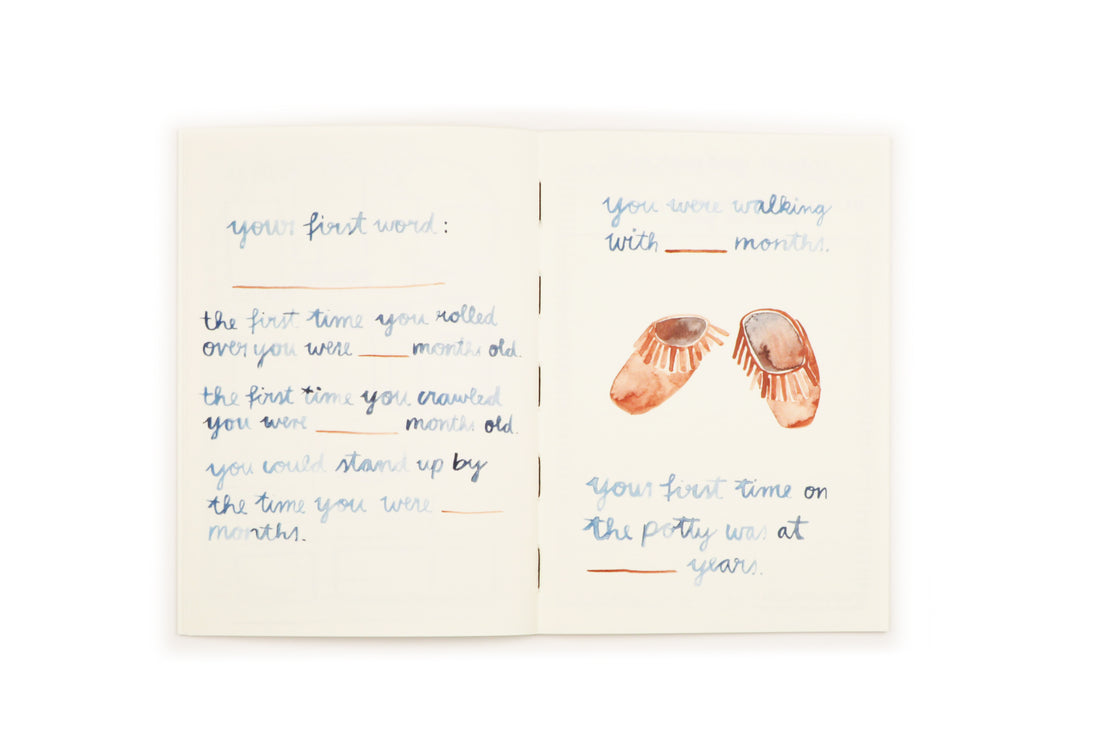 your first word:
the first time you rolled
over you were ____ months old.
the first time you crawled
you were ____ months old.
you could stand up by
the time you were ____
months.
you were walking
with ____ months.
your first time on
the potty was at
____ years.